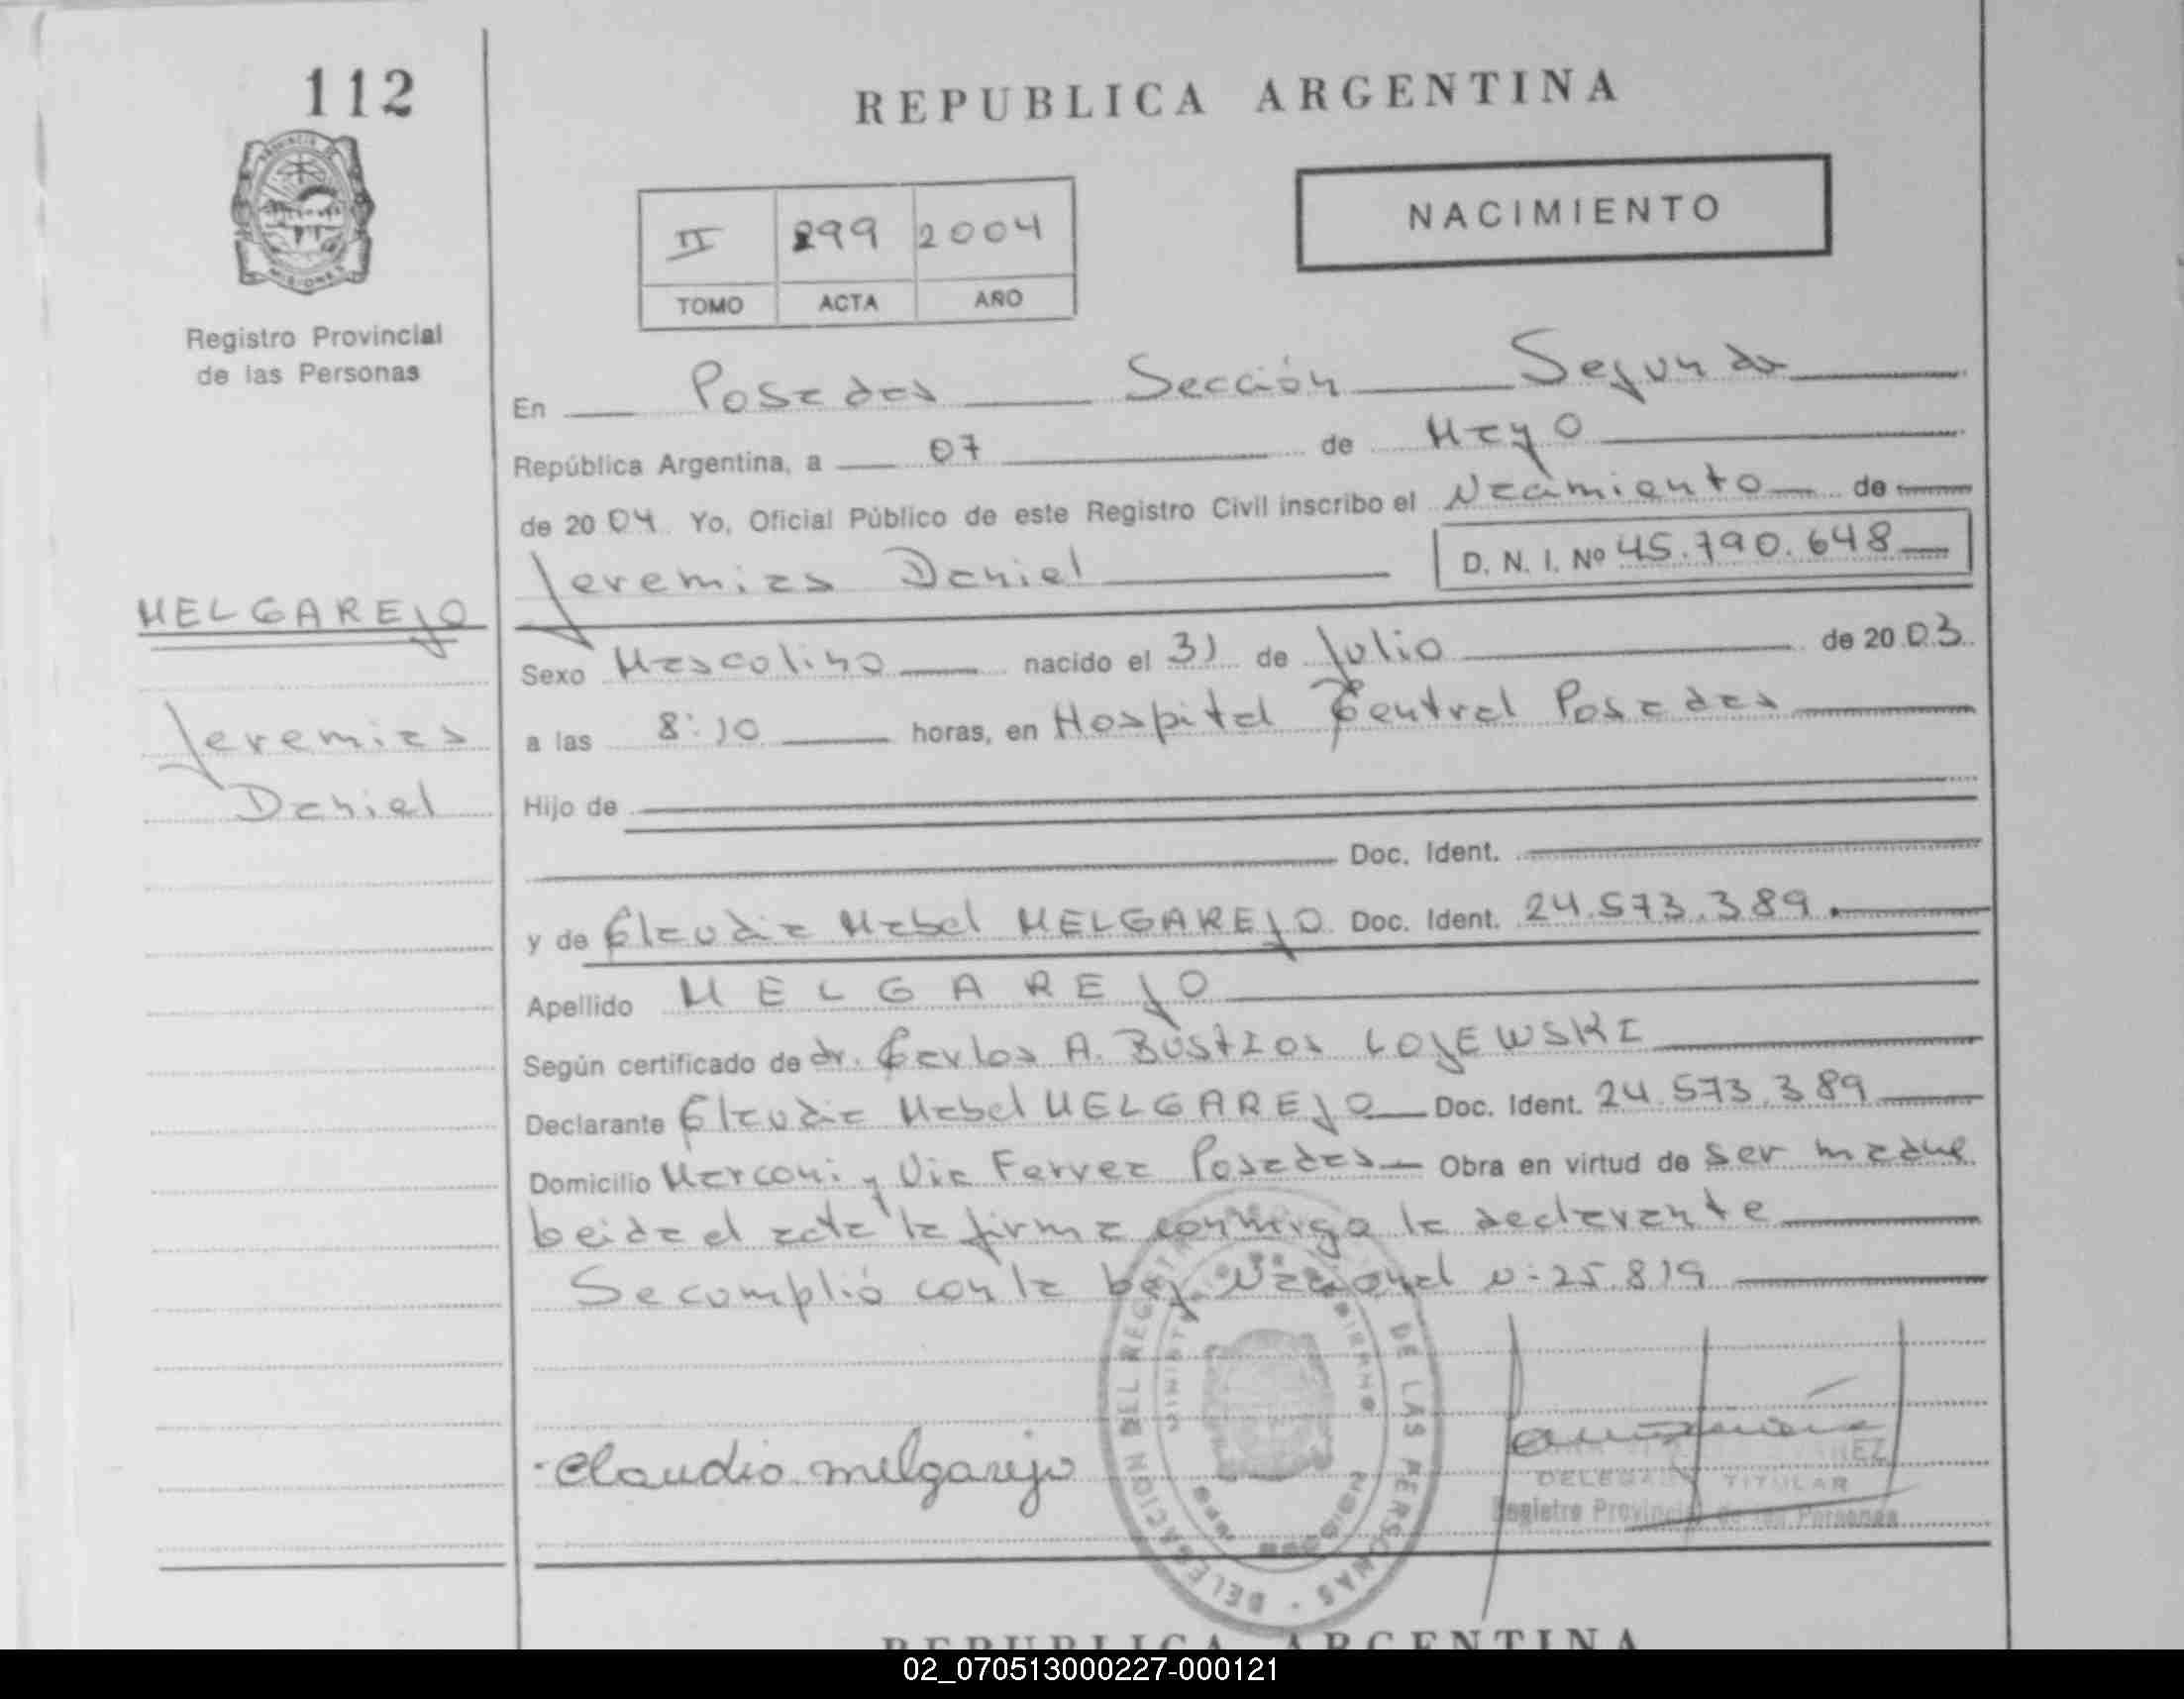 112
REPUBLICA ARGENTINA
NACIMIENTO
II 299 2004
TOMO ACTA AÑO
Registro Provincial
de las Personas
En Posadas Sección Segunda
República Argentina, a 07 de Mayo
de 2004 Yo, Oficial Público de este Registro Civil inscribo el Nacimiento de
Jeremias Daniel D. N. I. Nº 45.790.648
MELGAREJO
Jeremias
Daniel
Sexo Masculino nacido el 31 de Julio de 2003
a las 8:10 horas, en Hospital Central Posadas
Hijo de
Doc. Ident.
y de Claudia Mabel MELGAREJO Doc. Ident. 24.573.389.
Apellido MELGAREJO
Según certificado de dr. Carlos A. BUSTIOS LOJEWSKI
Declarante Claudia Mabel MELGAREJO Doc. Ident. 24.573.389
Domicilio Marconi y Via Ferrea Posadas Obra en virtud de ser madre
Leida el acta la firma conmigo la declarante
Se cumplió con la Ley Nacional N: 25.819
Claudia melgarejo
DELEGADO TITULAR
Registro Provincial de las Personas
DELEGACION DEL REGISTRO DE LAS PERSONAS
REPUBLICA ARGENTINA
02_070513000227-000121